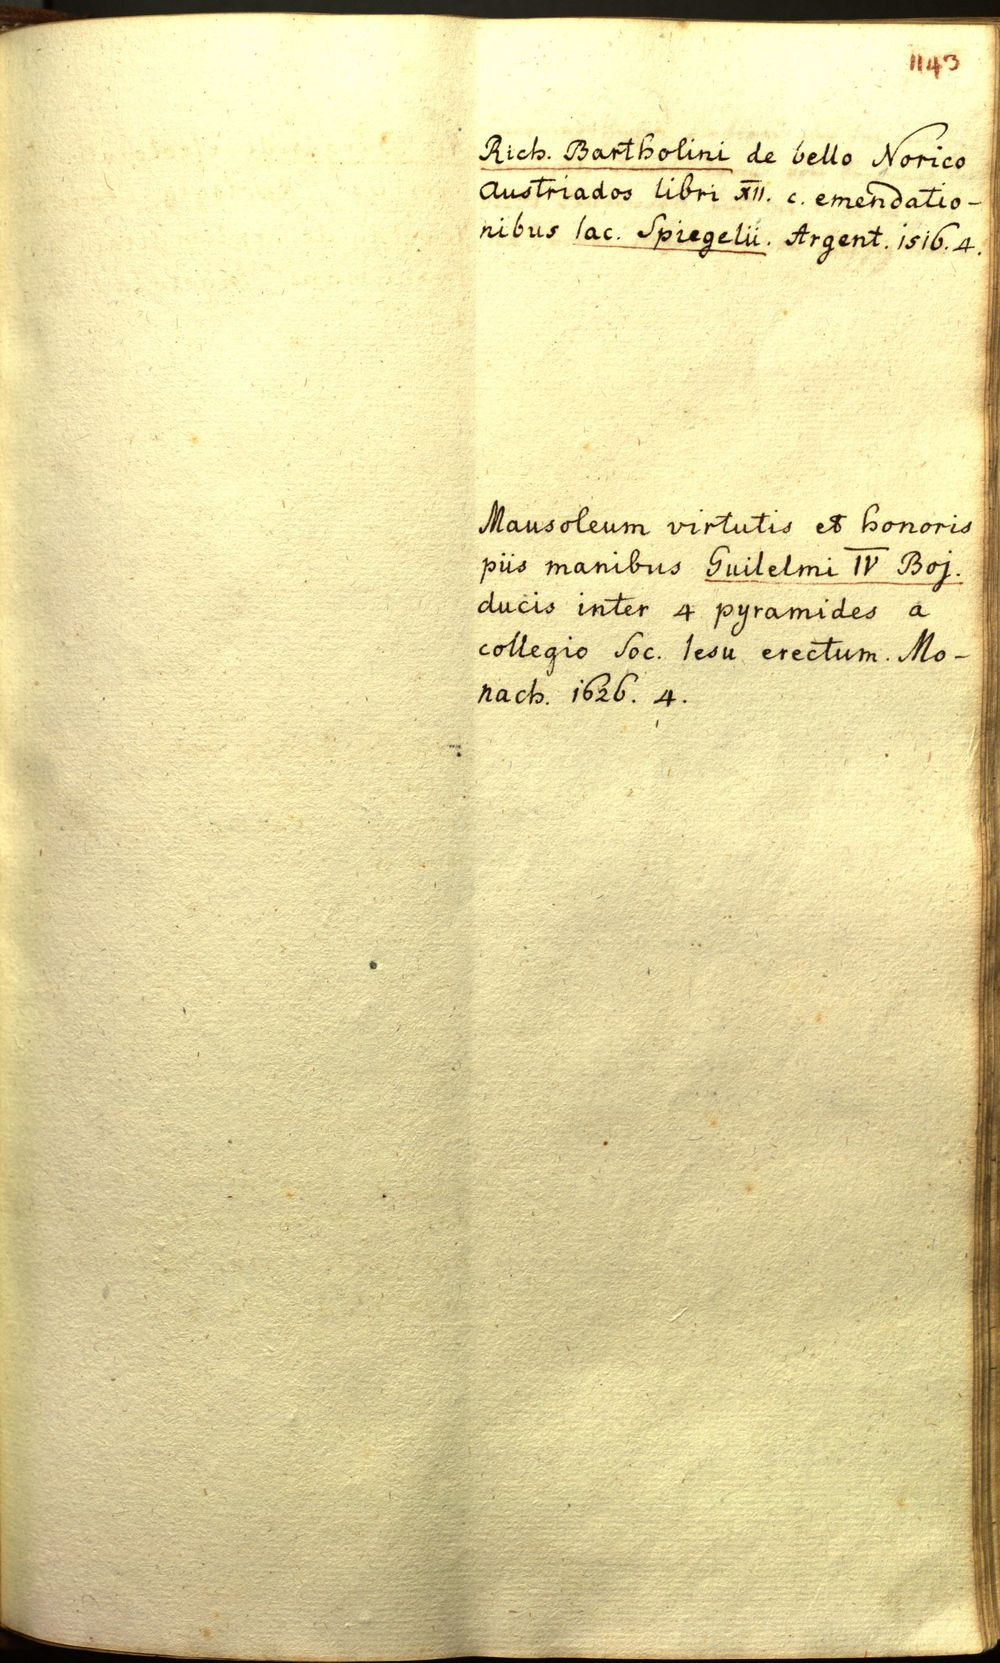 1143
Rich. Bartholini de bello Norico
Austriados libri XII. c. emendatio-
nibus Iac. Spiegelii. Argent. 1516. 4.
Mausoleum virtutis et honoris
piis manibus Guilelmi IV Boj.
ducis inter 4 pyramides a
collegio Soc. Iesu erectum. Mo-
nach. 1626. 4.